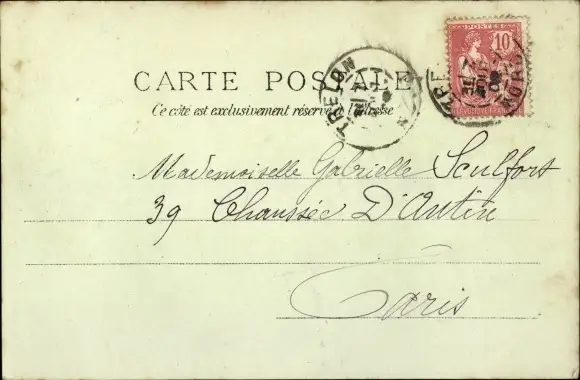 POSTES
10
CARTE POSTALE
Ce côté est exclusivement réservé à l'adresse
TRELON
NORD
Mademoiselle Gabrielle Sculfort
39 Chaussée D'Antin
Paris